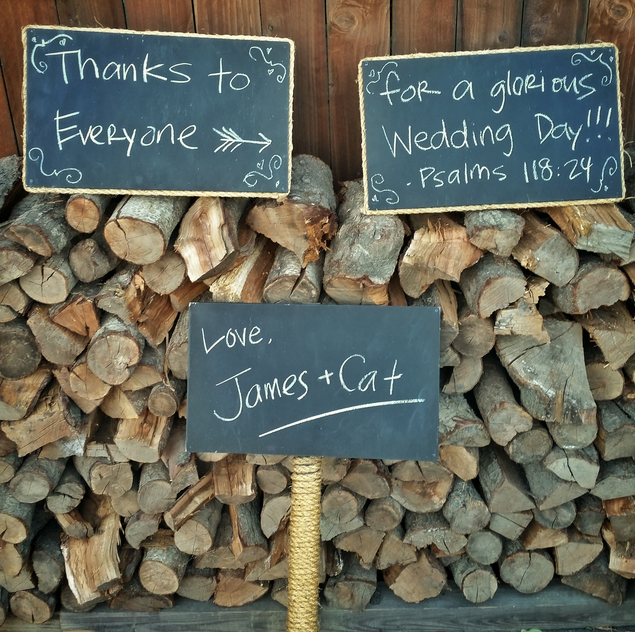 Thanks to
Everyone
for a glorious
Wedding Day!!!
- Psalms 118:24
Love,
James + Cat